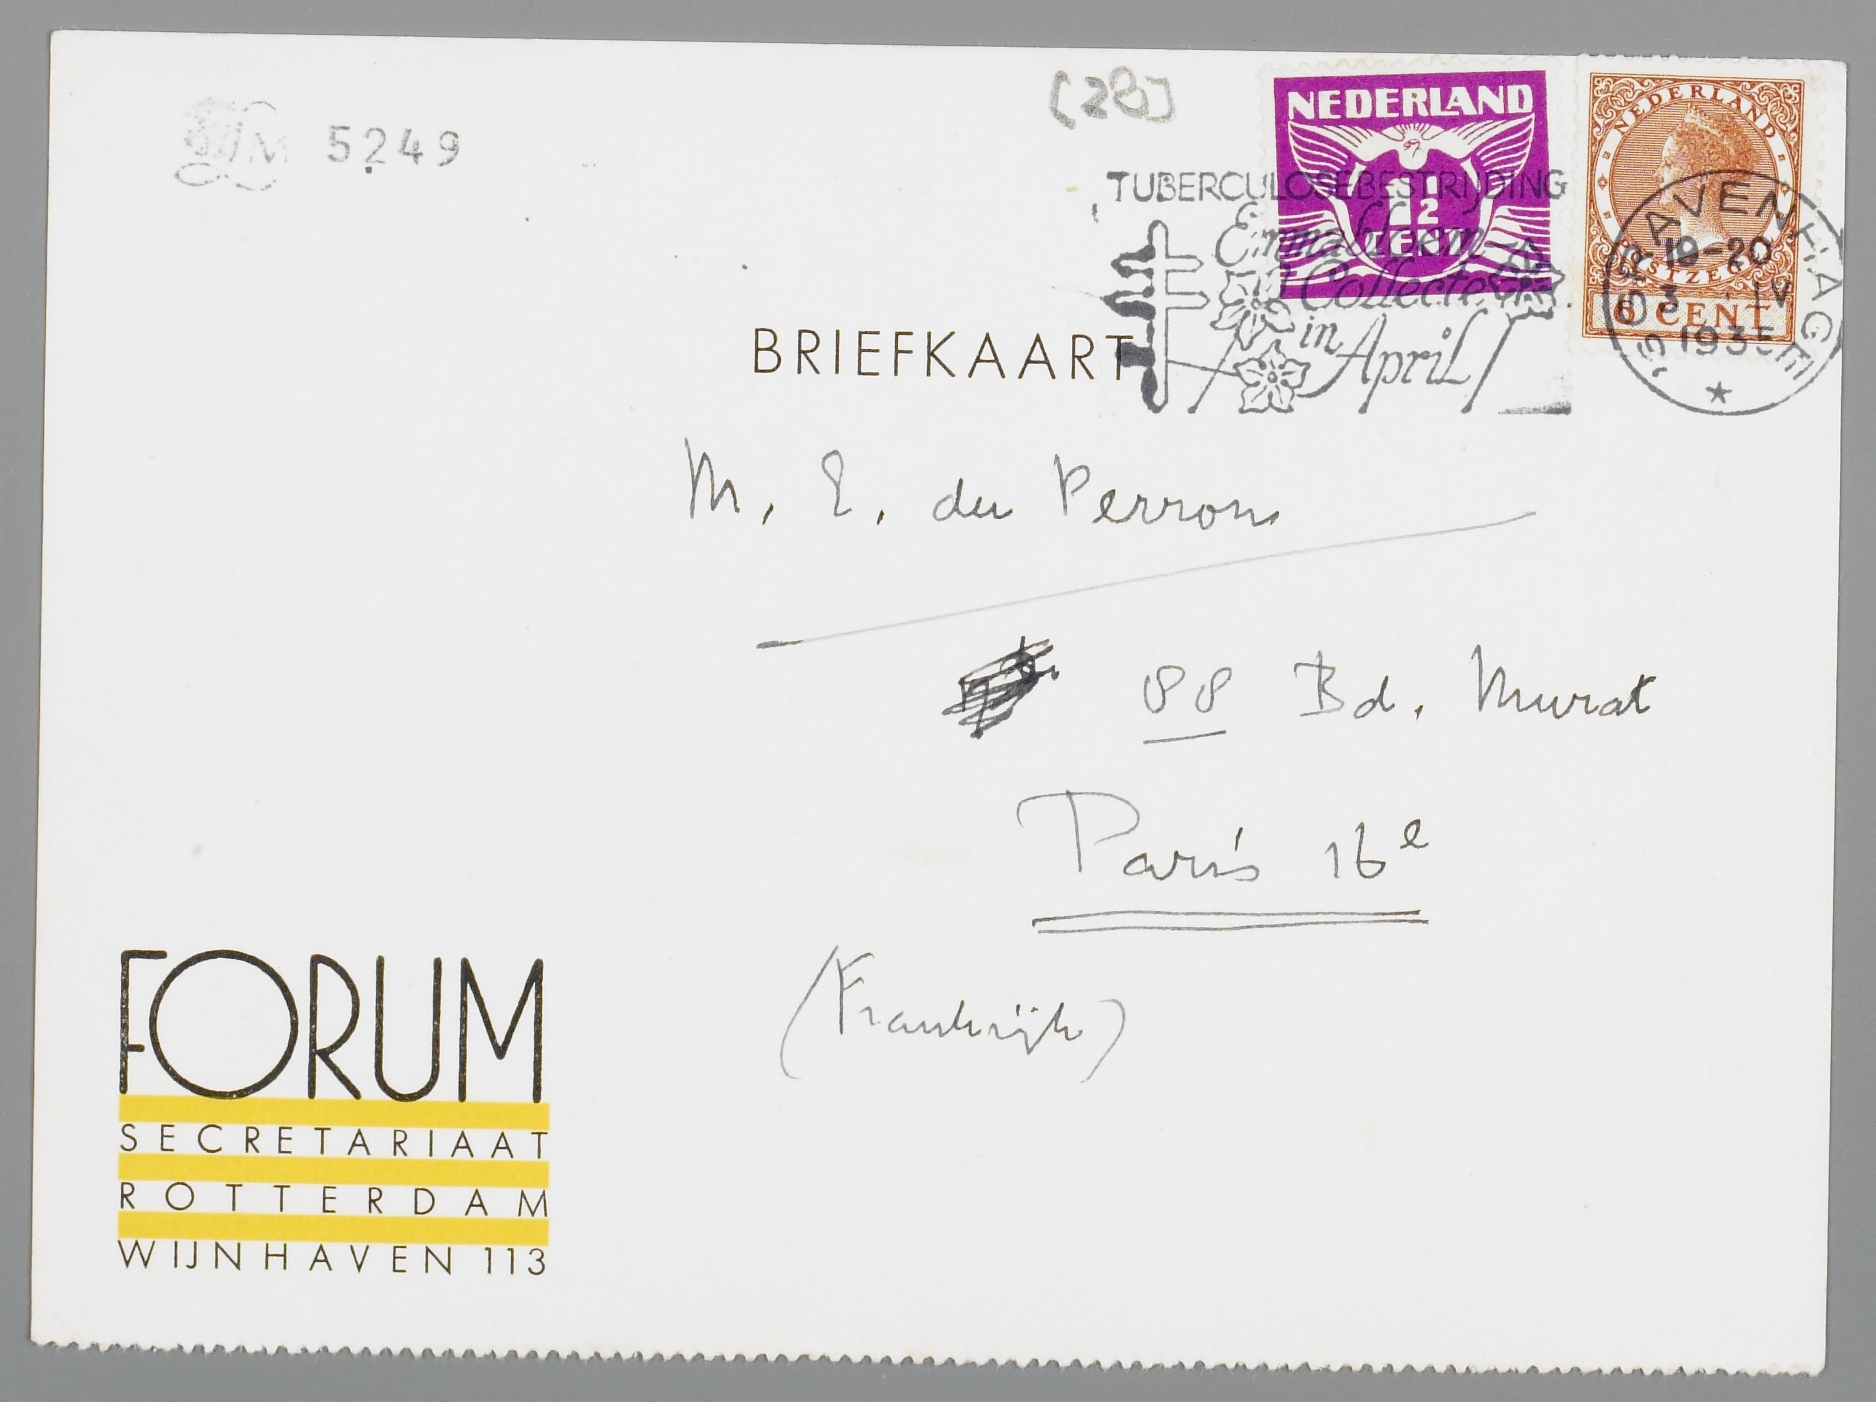 5249
[28]
NEDERLAND
1½
CENT
NEDERLAND
POSTZEGEL
6 CENT
TUBERCULOSEBESTRIJDING
Emmabloem
Collecte
in
April
'S GRAVENHAGE
19-20
3 IV
1935
BRIEFKAART
M. E. du Perron
88 Bd. Murat
Paris 16e
(Frankrijk)
FORUM
SECRETARIAAT
ROTTERDAM
WIJNHAVEN 113